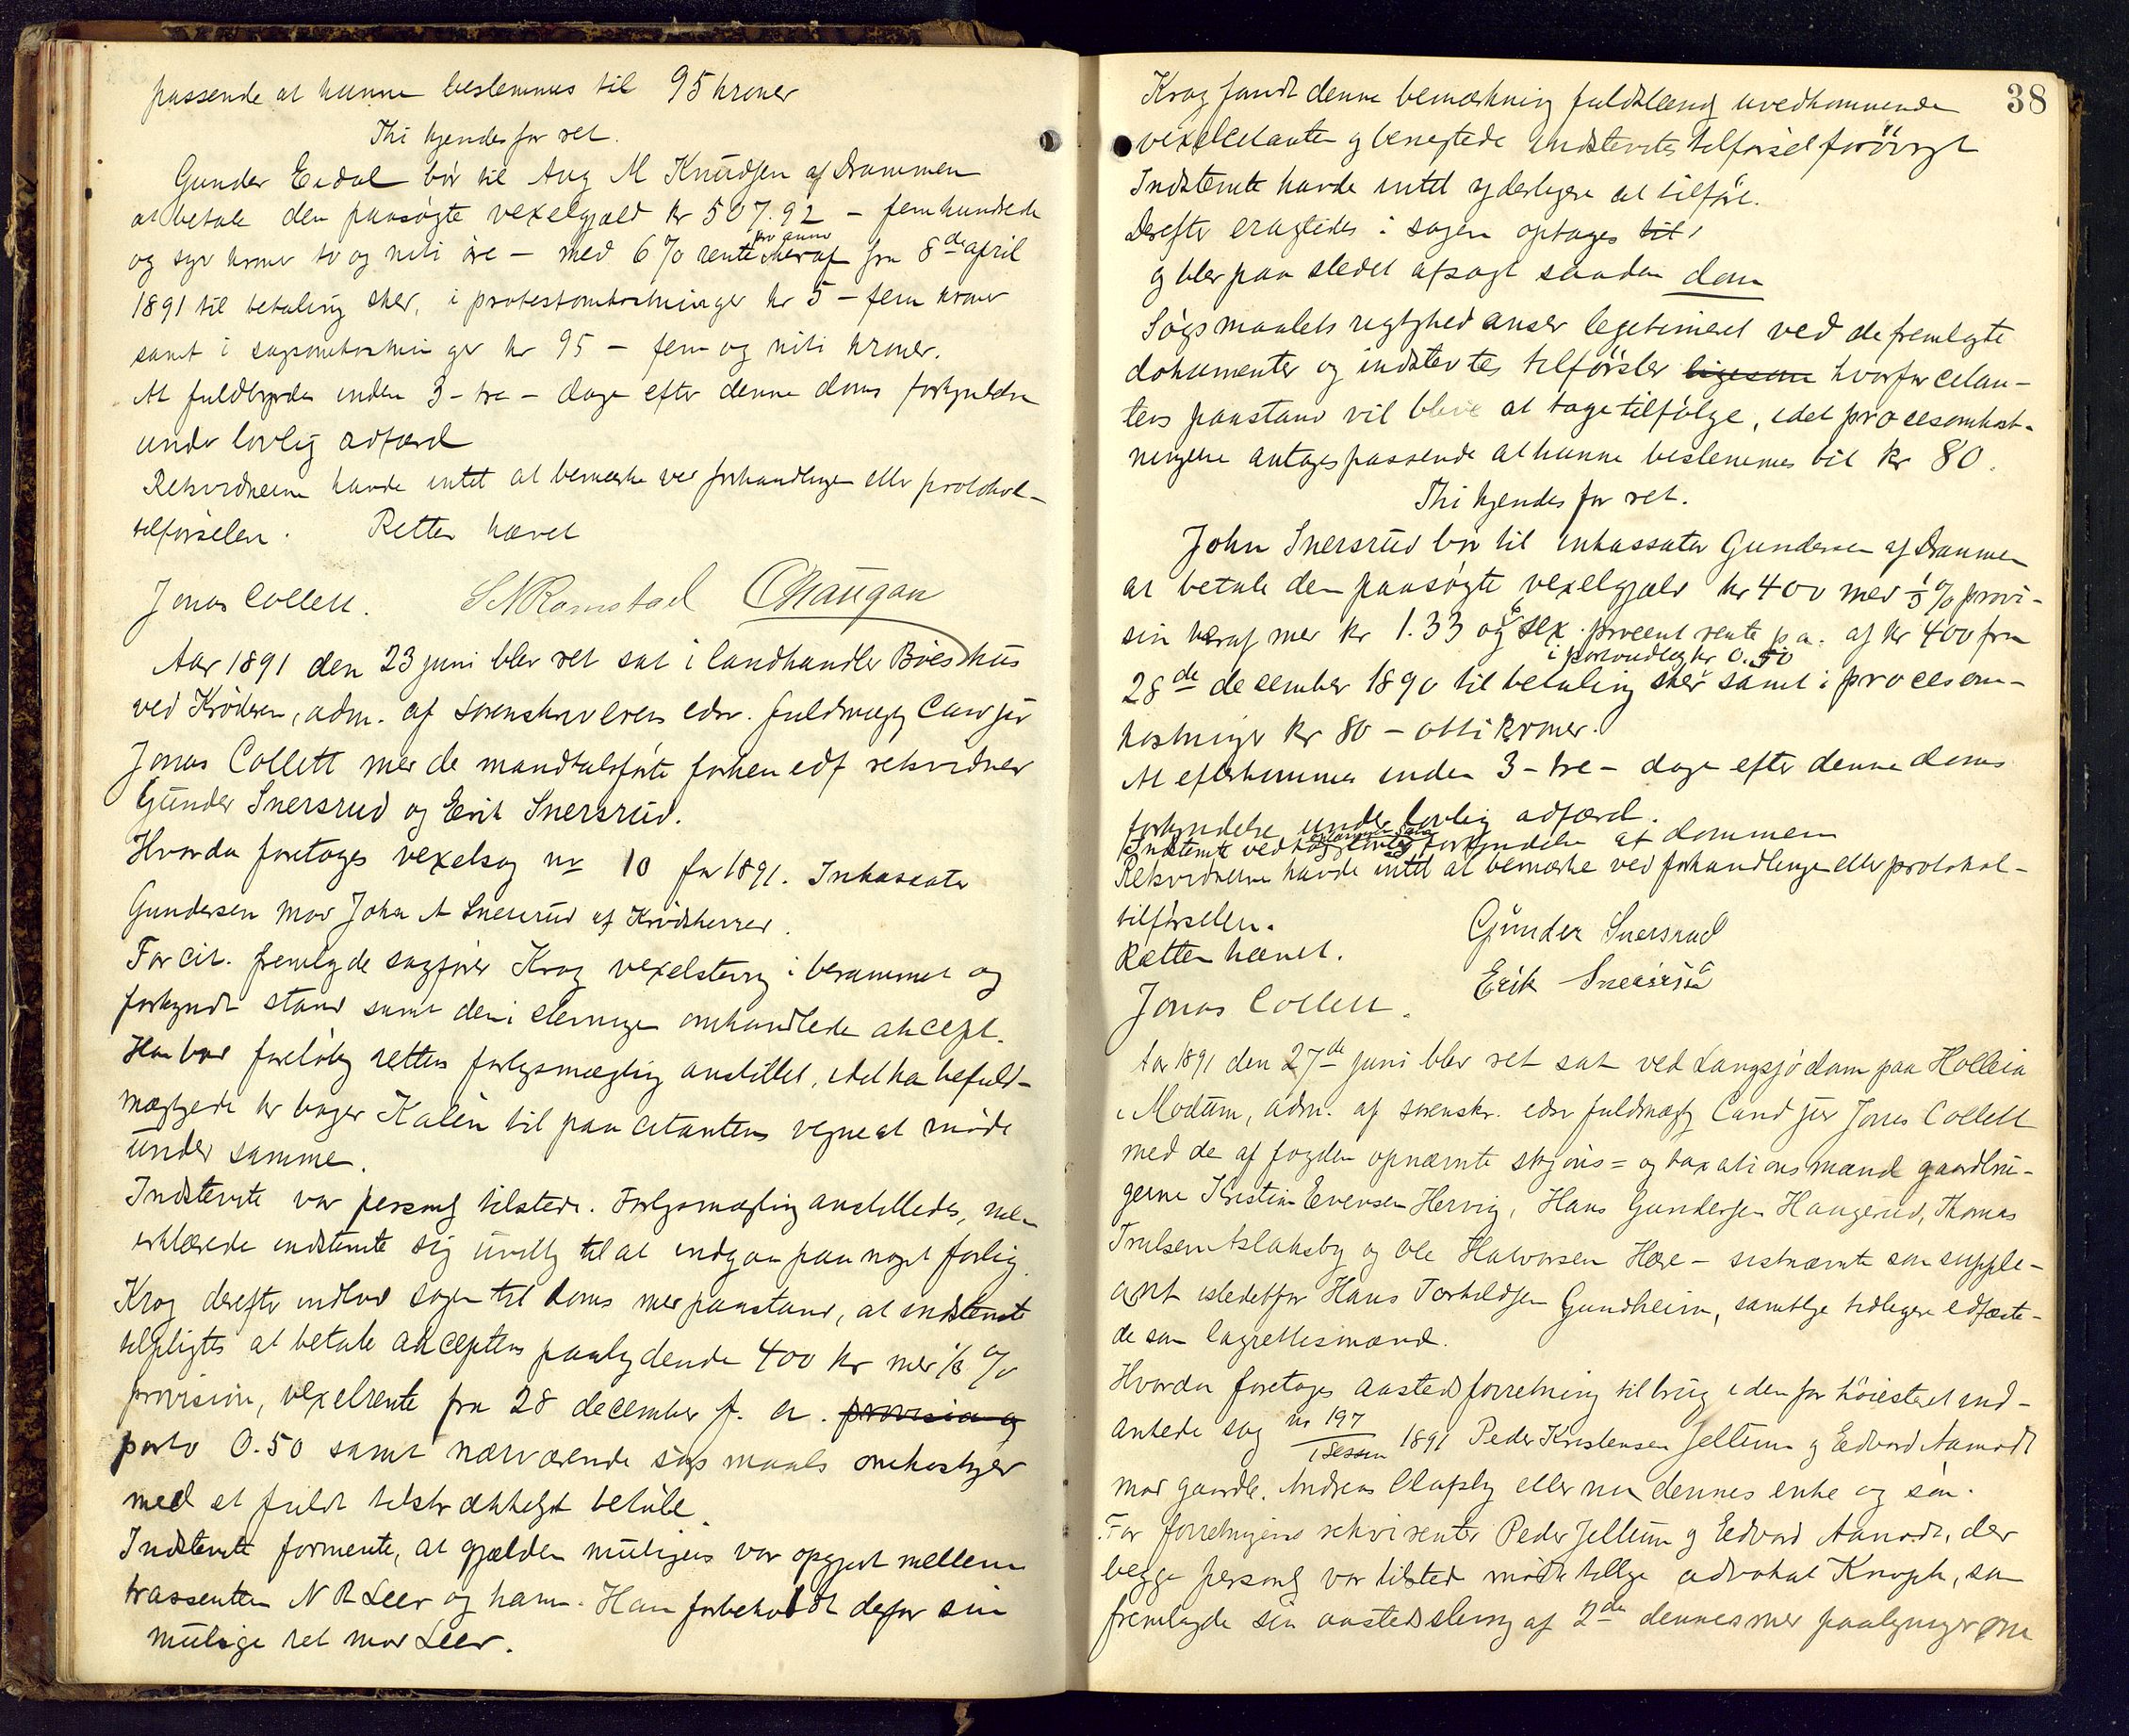 passende at kunne bestemmes til 95 kroner
Thi kjendes for ret.
Gunder Eidal bör til Aug M Knudsen af Drammen
at betale den paasögte vexelgjæld kr 507.92 - femhundrede
og syv kroner to og niti öre - med 6 % rente pro anno heraf fra 8de april
1891 til betaling sker, i protestomkostninger kr 5 - fem kroner
samt i sagsomkostninger kr 95 - fem og niti kroner.
At fuldbyrdes inden 3 - tre - dage efter denne doms forkyndelse
under lovlig adfærd
Retsvidnerne havde intet at bemærke ved forhandlingen eller protokol-
tilförselen. Retten hævet
Jonas Collett. S N Ramstad CHaugan
Aar 1891 den 23 juni blev ret sat i landhandler Böes hus
ved Kröderen, adm. af sorenskriverens edsv. fuldmægtig Cand jur
Jonas Collett med de mandtalsförte forhen edf retsvidner
Gunder Snersrud og Erik Snersrud.
Hvorda foretoges vexelsag nr 10 for 1891. Inkassator
Gundersen mod John A Snersrud af Krödsherred.
For cit. fremlagde sagförer Krog vexelstevning i berammet og
forkyndt stand samt den i stevningen omhandlede akcept.
Han bad foreløbig rettens forligsmægling anstillet, idet han befuld-
mægtigede hr bager Kalén til paa citantens vegne at möde
under samme.
Indstevnte var personlig tilstede. Forligsmægling anstilledes, men
erklærede indstevnte sig uvillig til at indgaa paa noget forlig.
Krog derefter indlod sagen til doms med paastand, at indstevnte
tilpligtes at betale akceptens paalydende 400 kr med 1/3 %
provision, vexelrente fra 28 december f. a. provision og
porto 0.50 samt nærværende sögsmaals omkostninger
med et fuldt tilstrækkeligt belöb.
Indstevnte formente, at gjælden muligens var opgjort mellem
trassenten N R Leer og ham. Han forbeholdt derfor sin
mulige ret mod Leer.
38
Krog fandt denne bemærkning fuldstændig uvedkommende
vexelcitanten og benegtede indstevntes tilförsel forövrigt
Indstevnte havde intet yderligere at tilföre.
Derefter eragtedes: sagen optages til
og blev paa stedet afsagt saadan dom
Sögsmaalets rigtighed anser legitimeret ved de fremlagte
dokumenter og indstevntes tilförsler ligesom hvorfor citan-
tens paastand vil blive at tage tilfölge, idet procesomkost-
ningerne antages passende at kunne bestemmes til kr 80.
Thi kjendes for ret.
John Snersrud bör til inkassator Gundersen af Drammen
at betale den paasögte vexelgjæld kr 400 med 1/3 % provi-
sion heraf med kr 1.33 og sex procent rente p a. af kr 400 fra
i portoudlæg kr 0.50
28de december 1890 til betaling sker samt i procesom-
kostninger kr 80 - otti kroner.
At efterkommes inden 3 - tre - dage efter denne doms
forkyndelse under lovlig adfærd.
Indstevnte vedtog lovlig forkyndelse af dommen
Retsvidnerne havde intet at bemærke ved forhandlingen eller protokol-
tilförselen.
Retten hævet. Gunder Snersrud
Jonas Collett. Erik Snersrud
Aar 1891 den 27de juni blev ret sat ved Langsjödam paa Holleia
i Modum, adm. af sorenskr. edsv fuldmægtig Cand jur Jonas Collett
med de af fogden opnævnte skjöns= og taxationsmænd gaardbru-
gerne Kristian Evensen Hervig, Hans Gundersen Haugerud, Thomas
Trulsen Aslaksby og Ole Halvorsen Hære - sistnævnte som supple-
ant istedetfor Hans Torkildsen Gundheim, samtlige tidligere edfæste-
de som lagrettesmænd.
Hvorda foretoges aastedsforretning til brug i den for höiesteret ind-
ankede sag nr 197 / 1 Session 1891 Peder Kristensen Jellum og Edvard Aamodt
mod gaardb. Andreas Olafsby eller nu dennes enke og sön.
For forretningens rekvirenter Peder Jellum og Edvard Aamodt, der
begge personlig var tilstede mödte tillige advokat Knoph, som
fremlagde sin aastedsstevning af 2den dennes med paategninger om